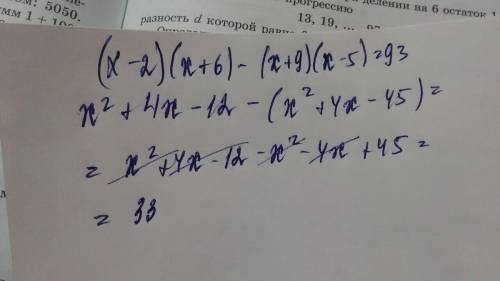 ом: 5050.
мм 1 + 
делении на 6 остаток 1
прогрессию
13, 19, ...
разность d которой
(x-2)(x+6)-(x+9)(x-5)=93
x²+4x-12-(x²+4x-45)=
= x²+4x-12-x²-4x+45=
= 33